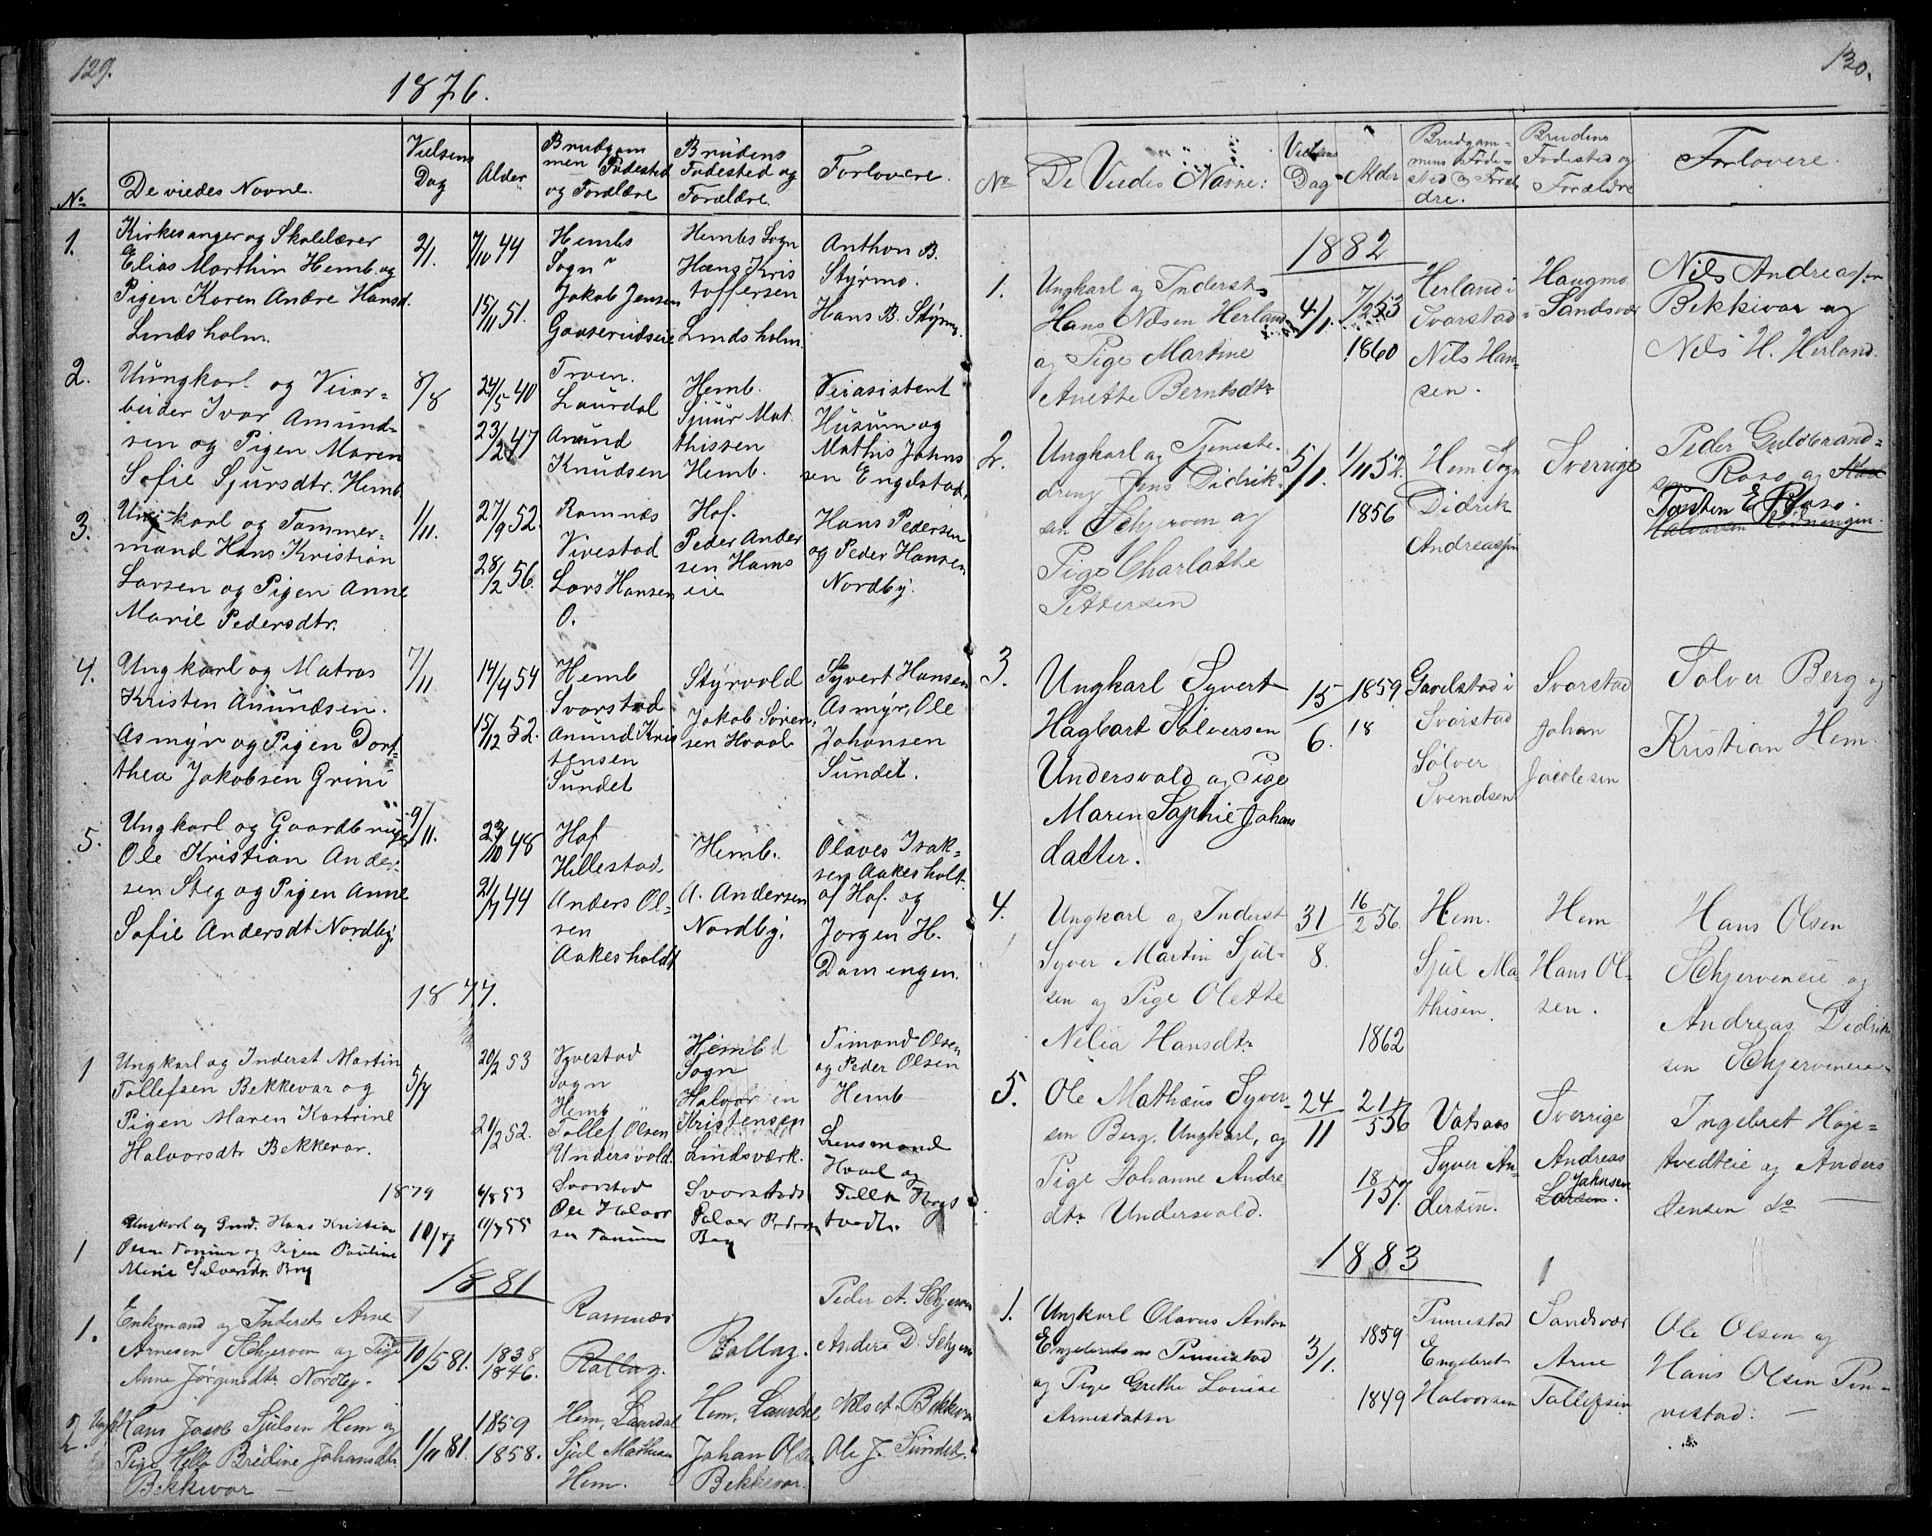 129.
1876.
No
De viedes Navne.
Vielsens Dag
Alder
Brudgom
men Fødested
og Forældre
Brudens
Fødested og
Forældre.
Forlovere.
1.
Kirkesanger og Skolelærer
Elias Marthin Hemb. og
Pigen Karen Andre Hansd.
Lindsholm.
2/1.
7/10 44
15/11 51.
Hembs
Sogn
Jakob Jensen
Hembs Sogn
Hans Kris
toffersen
Lindsholm.
Anthon B.
Styrmo.
Hans B. Styrmo.
2.
Uungkarl og Veiar-
beider Ivar Amund-
sen og Pigen Maren
Sofie Sjursdtr. Hemb
8/8
24/5 40
23/2 47
Troen.
Laurdal
Amund
Knudsen
Hemb.
Sjuur Mat
thissen
Hemb.
Veiasistent
Husum og
Mathis Johns
sen Engelstad.
3.
Ungkarl og Tømmer-
mand Hans Kristian
Larsen og Pigen Anne
Marie Pedersdtr.
1/11.
27/9 52.
28/2 56.
Ramnæs
Vivestad
Lars Hansen
O.
Hof.
Peder Ander
sen Hams
eie
Hans Pedersen
og Peder Hansen
Nordby.
4.
Ungkarl og Matros
Kristen Amundsen.
Asmyr og Pigen Dort-
thea Jakobsen Grini
7/11
14/9 54
15/12 52.
Hemb
Svarstad
Amund Kris
tensen
Sundet
Styrvold
Jakob Søren-
sen Hvaal
Syvert Hansen
Asmyr, Ole
Johansen
Sundet.
5.
Ungkarl og Gaardbruger
Ole Kristian Ander-
sen Steg og Pigen Anne
Sofie Andersdt Nordby.
9/11.
23/10 48
2/7 44
Hof
Hillestad.
Anders Ol-
sen
Aakesholdt
Hemb.
A. Andersen
Nordby.
Olaves Isak-
sen Aakesholt
af Hof. og
Jorgen H.
Damengen.
1877.
1
Ungkarl og Inderst Martin
Tollefsen Bekkevar og
Pigen Maren Kartrine
Halvorsdtr Bekkevar.
5/7
20/2 53
20/2 52.
Vivestad
Sogn
Hemb
Tollef Olsen
Undersvold.
Hemb
Sogn
Halvor
Kristensen
Lindsværk.
Timand Olsen
og Peder Olsen
Hemb
1879
1
Ungkarl og Hans Kristian
Olsen og Pigen Pauline
Marie Sølversdtr. Berg
10/7
4/8 53
4/7 55
Svarstad
Ole Halvor
sen
Svarstad
Sølver Pedersen
Berg
Lensmand
Hvaal og
Tollef
1881
1.
Enkemand og Inderst Arne
Arnesen Schjerven og Pige
Anne Jørgensdtr Nordby.
10/5 81.
1838
1846.
Ramnæs
Rollag.
Rollag.
Peder A. Schjerven
Anders D. Schjerven
2
Ungk.
Hans Jacob Sjulsen Hem og
Pige Bredine Johansdtr.
Bekkevar
1/11 81.
1859
1858.
Hem, Laurdal
Sjul Mathisen
Hem.
Hem, Laurdal
Johan Olsen
Bekkevar.
Nils A. Bekkevar
Ole J. Sundet.
130.
No
De Viedes Navne:
Vielses
Dag
Alder
Brudgom-
mens Føde-
sted og Foræl
dre.
Brudens
Fødested og
Forældre
Forlovere.
1882
1.
Ungkarl og Inderst
Hans Nilsen Herland
og Pige Martine
Anette Berntsdtr
4/1.
7/2 53
1860
Herland i
Svarstad
Nils Han-
sen.
Haugmo
Sandsvær
Nils Andreassen
Bekkevar og
Nils H. Herland.
2.
Ungkarl og Tjeneste-
dreng Jens Didrik-
sen Schjerven og
Pige Charlotte
Pettersen
5/1.
1/11 52.
1856
Hem Sogn
Didrik
Andreassen
Sverrige
Peder Guldbrand-
sen Røso og
Torsten E. Røso.
3.
Ungkarl Syvert
Hagbart Sølversen
Undersvold og Pige
Maren Sophie Johans
datter.
15/6.
1859
18
Gavelstad i
Svarstad
Sølver
Svendsen
Svarstad
Johan
Jacobsen
Sølver Berg og
Kristian Hem.
4.
Ungkarl og Inderst
Syver Martin Sjul-
sen og Pige Olette
Nelia Hansdtr
31/8.
16/2 56
1862
Hem.
Sjul Ma-
thisen.
Hem
Hans Ol-
sen.
Hans Olsen
Schjerveneie og
Andreas Didrik
sen Schjerveneie
5.
Ole Mathæus Syver-
sen Berg, Ungkarl, og
Pige Johanne Andre
dtr Undersvold.
24/11
21/5 56
18/1 57.
Vatsaas
Syver An-
dersen.
Sverrige
Andreas
Jahnsen
Larsen.
Ingebret Høje-
tvedteie og Anders
Jensen do
1883
1.
Ungkarl Olavus Anton
Engebretsen Pinnestad
og Pige Grethe Louise
Arnesdatter
3/1.
1859
1849
Pinnestad
Engebret
Halvorsen
Sandsvær
Arne
Tollefsen
Ole Olsen og
Hans Olsen Pin-
nestad.